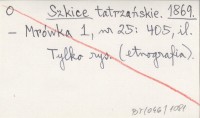 O Szkice tatrzańskie. 1869.
- Mrówka 1, nr 25: 405, il.
Tylko rys. (etnografia).